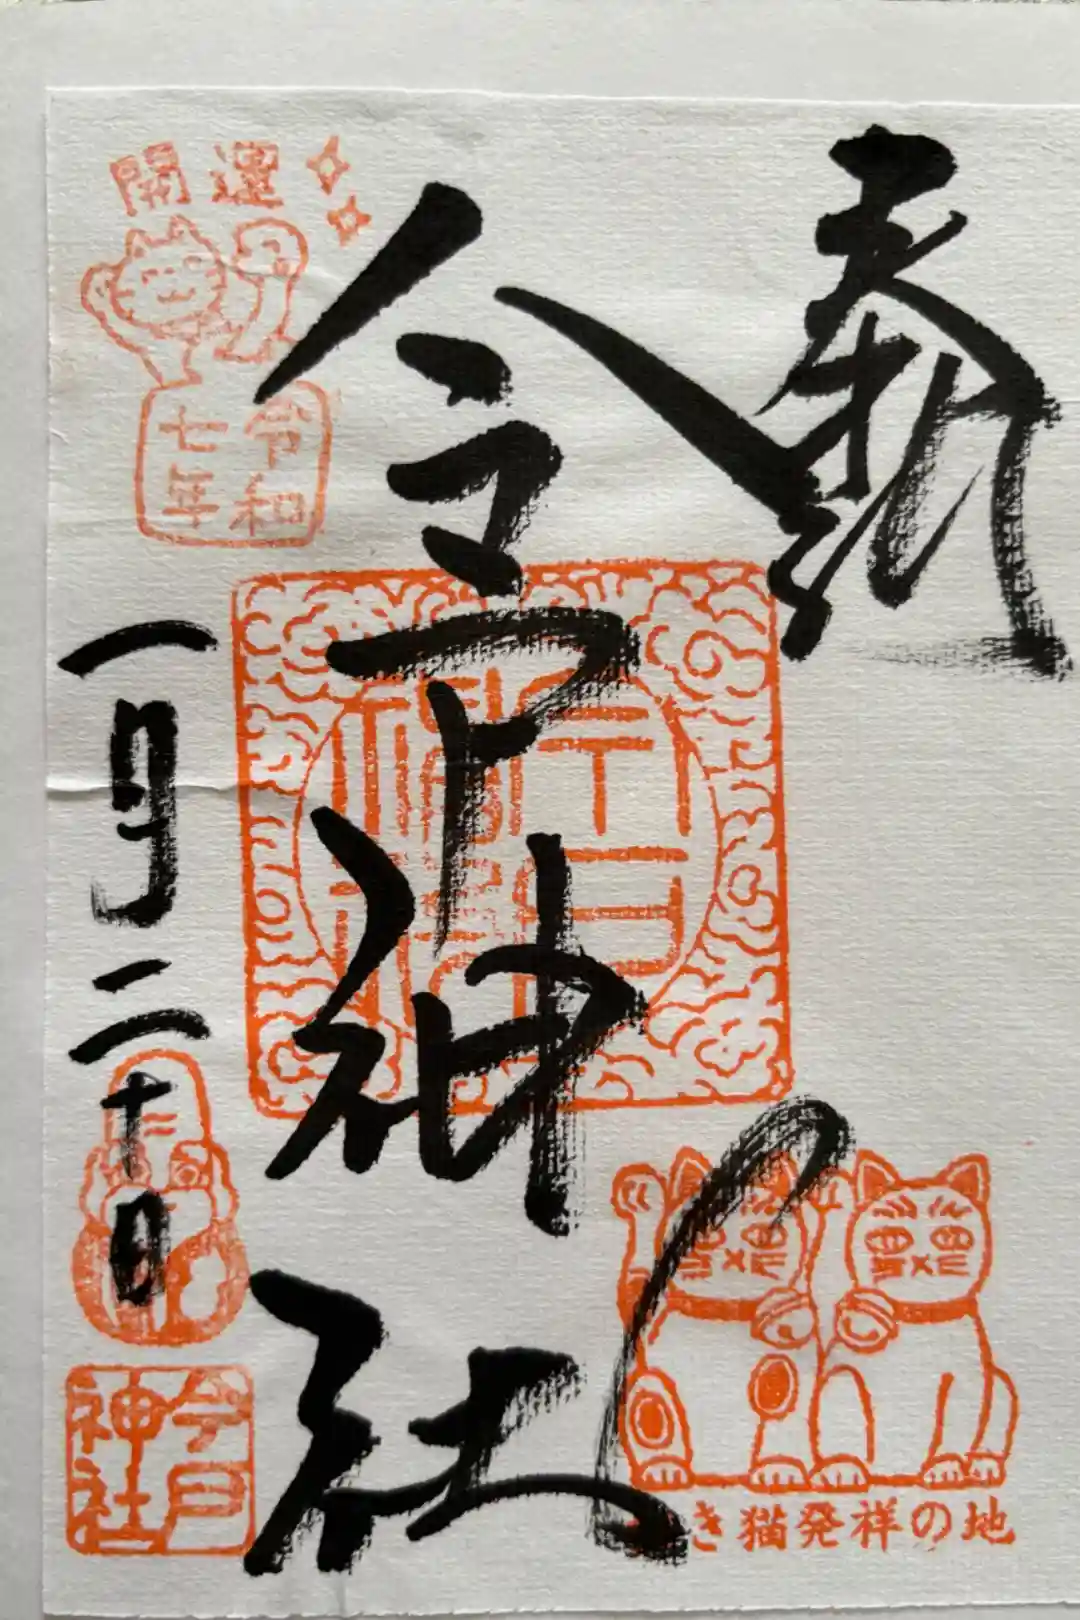 奉拝
今戸神社
開運
令和
七年
一月二十日
今戸
神社
き猫発祥の地